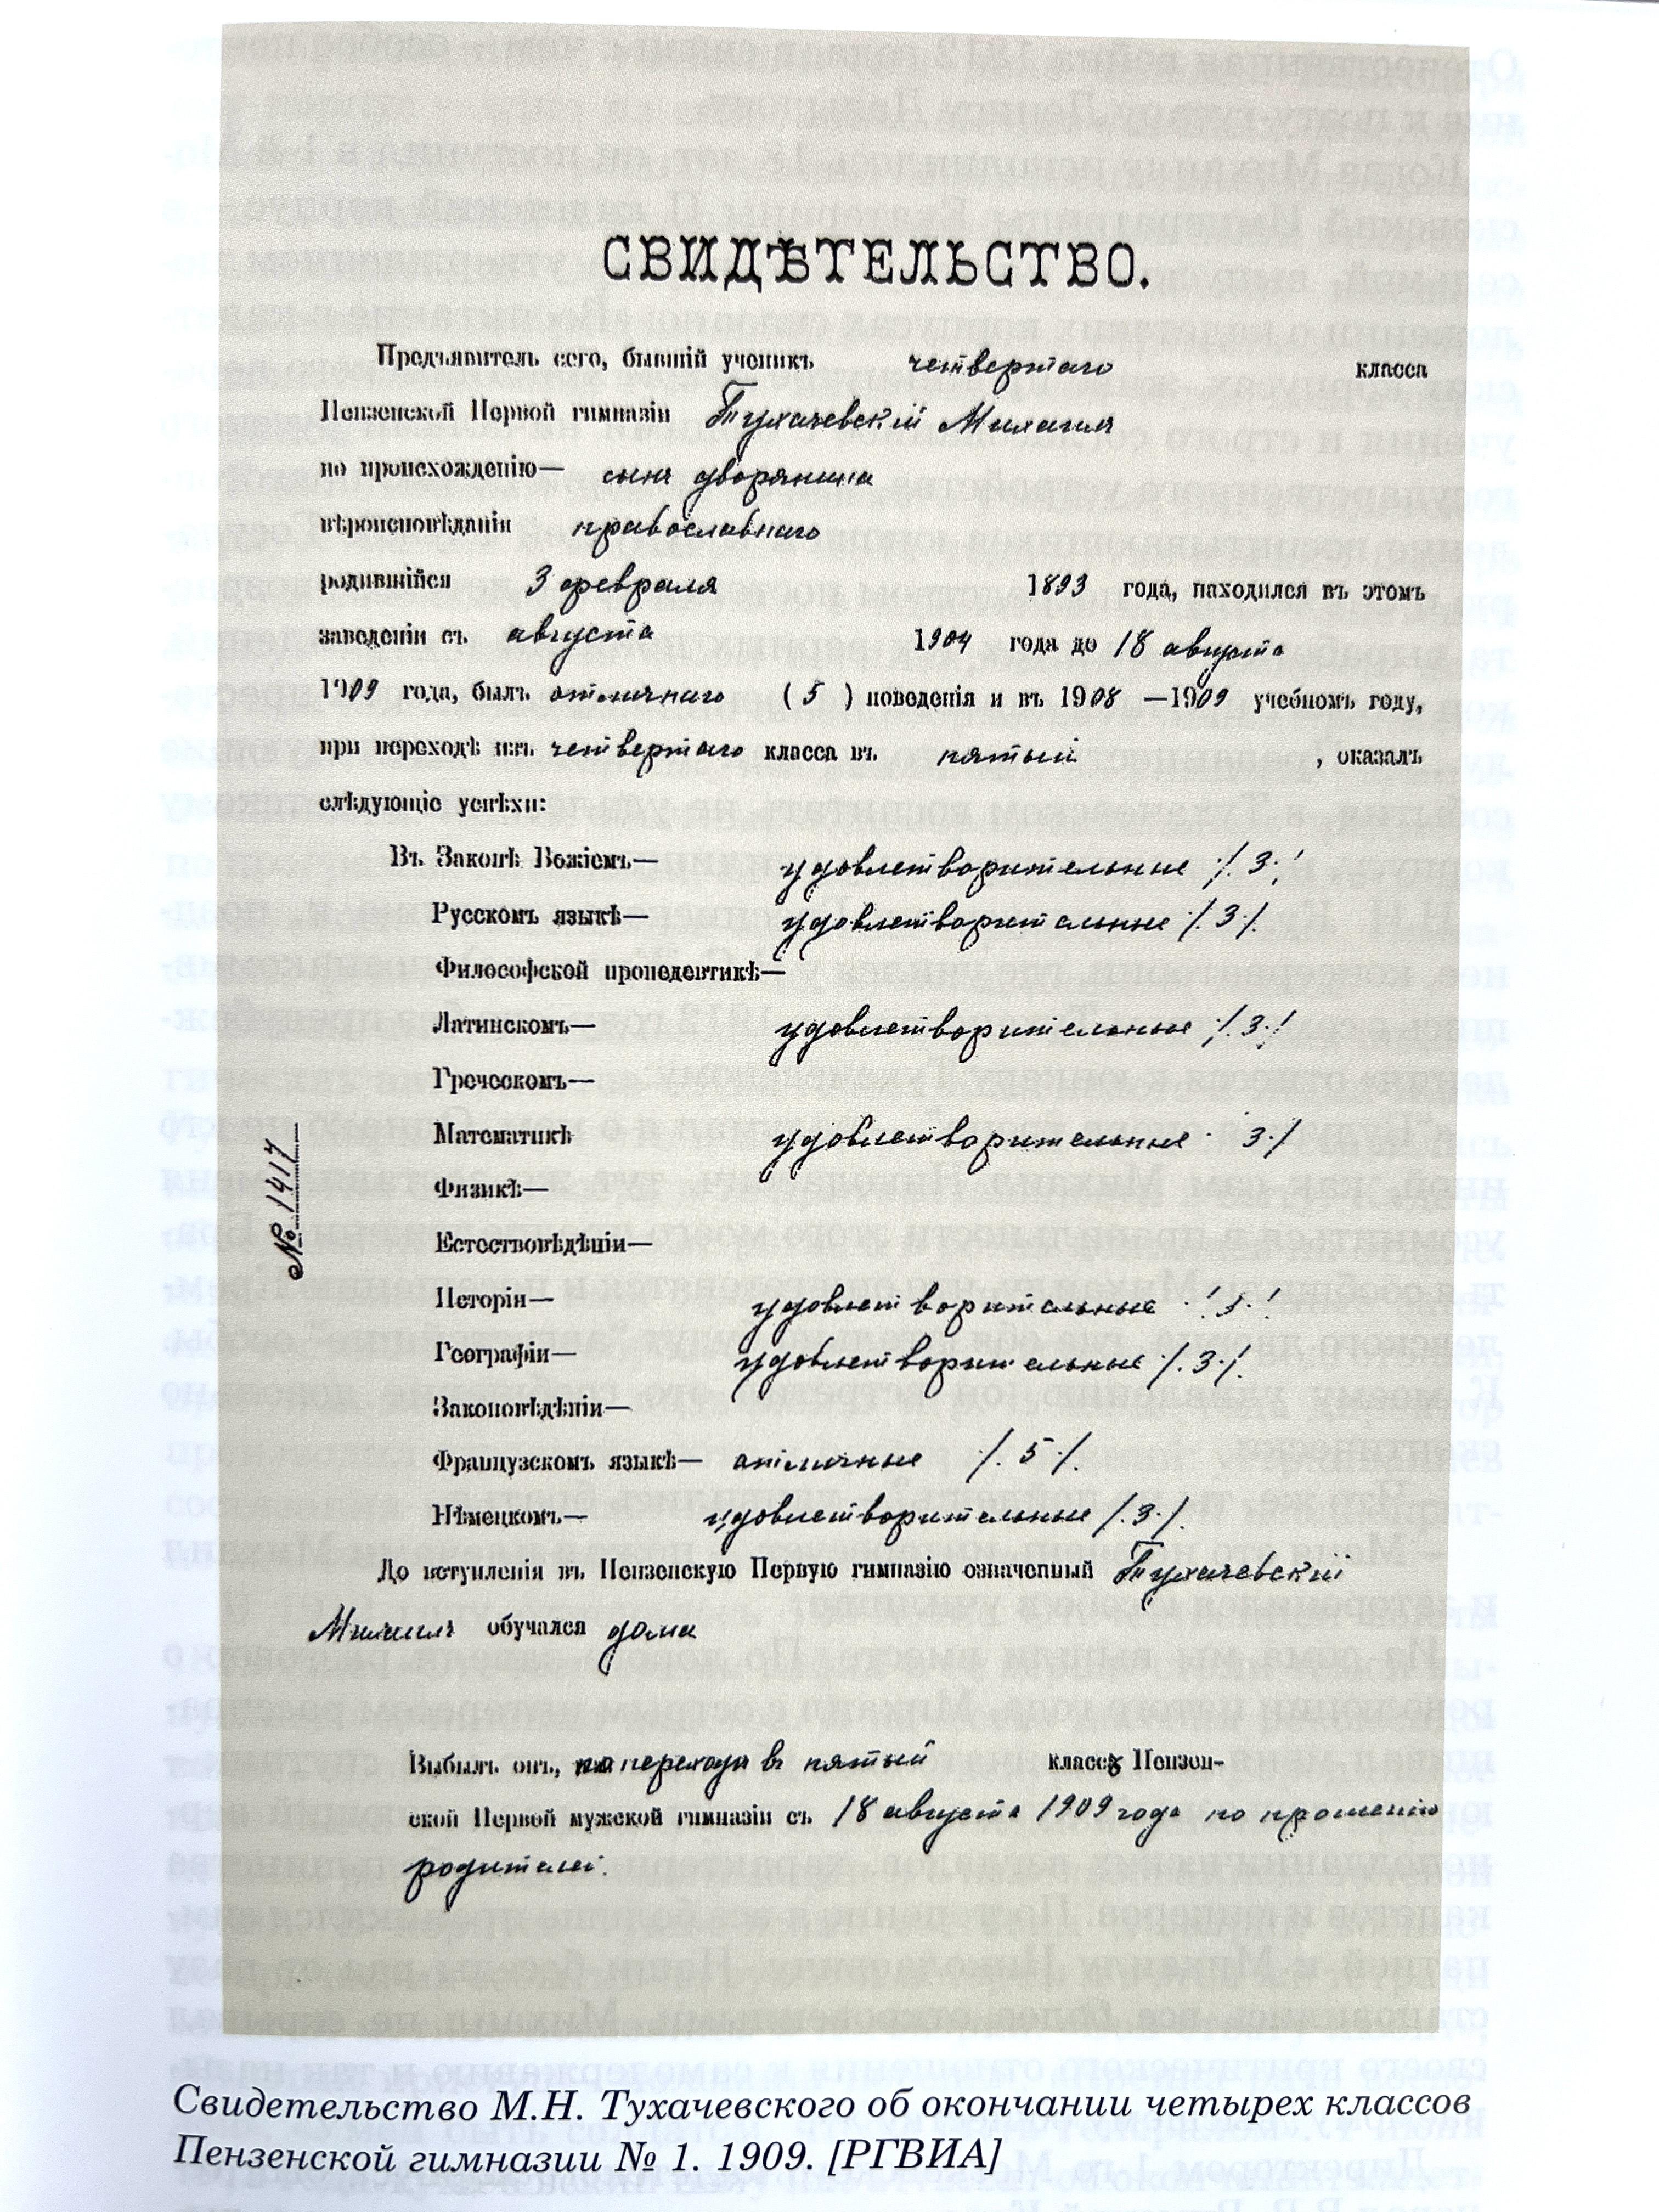 СВИДѢТЕЛЬСТВО.
Предъявитель сего, бывшій ученикъ четвертаго класса
Пензенской Первой гимназіи Тухачевскій Михаилъ
по происхожденію— сынъ дворянина
вѣроисповѣданія православнаго
родившійся 3 февраля 1893 года, находился въ этомъ
заведеніи съ августа 1904 года до 18 августа
1909 года, былъ отличнаго ( 5 ) поведенія и въ 1908 —1909 учебномъ году,
при переходѣ изъ четвертаго класса въ пятый , оказалъ
слѣдующіе успѣхи:
Въ Законѣ Божіемъ— удовлетворительные ./. 3 ./.
Русскомъ языкѣ— удовлетворительные ./. 3 ./.
Философской пропедевтикѣ—
Латинскомъ— удовлетворительные ./. 3 ./.
Греческомъ—
Математикѣ удовлетворительные 3 ./
Физикѣ—
Естествовѣдѣніи—
Исторіи— удовлетворительные ./. 3 ./.
Географіи— удовлетворительные ./. 3 ./.
Законовѣдѣніи—
Французскомъ языкѣ— отличные ./. 5 ./.
Нѣмецкомъ— удовлетворительные /. 3 ./.
До вступленія въ Пензенскую Первую гимназію означенный Тухачевскій
Михаилъ обучался дома
Выбылъ онъ, по переходѣ въ пятый классъ Пензен-
ской Первой мужской гимназіи съ 18 августа 1909 года по прошенію
родителей.
№ 1417
Свидетельство М.Н. Тухачевского об окончании четырех классов
Пензенской гимназии № 1. 1909. [РГВИА]